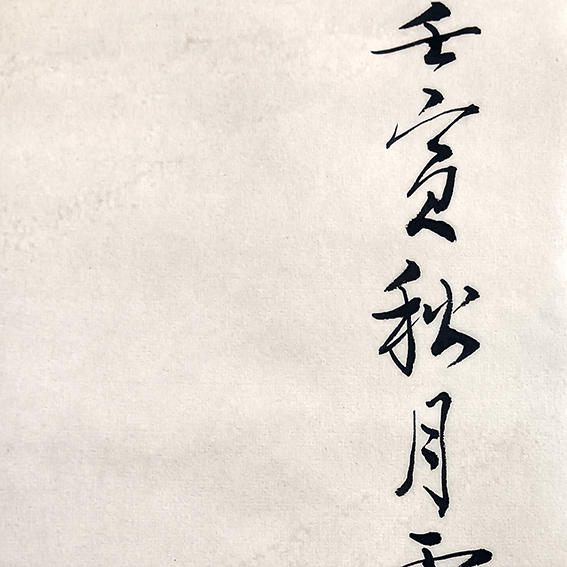 壬寅秋月